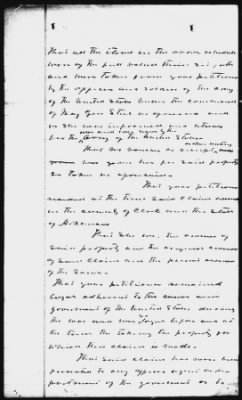 That all the items in the above schedule
were of the full value therein set forth
and were taken from your petitioner
by the officers and soldiers of the Army
of the United States under the command
of Maj Gen Steel as aforesaid and
as she was informed and believes
for the Army of the United States
That no voucher or receipt
was given her for said property
so taken as aforesaid
That your petitioner
resided at the time said claim accrued
in the county of Clark and the State
of Arkansas
That she was the owner of
said property and the original owner
of said claim and the present owner
of the same
That your petitioner remained
loyal adherent to the cause and
government of the United States during
the war and was loyal before and at
the time the taking the property for
which this claim is made
That said claim has never been
presented to any officer agent or de
partment of the government or to